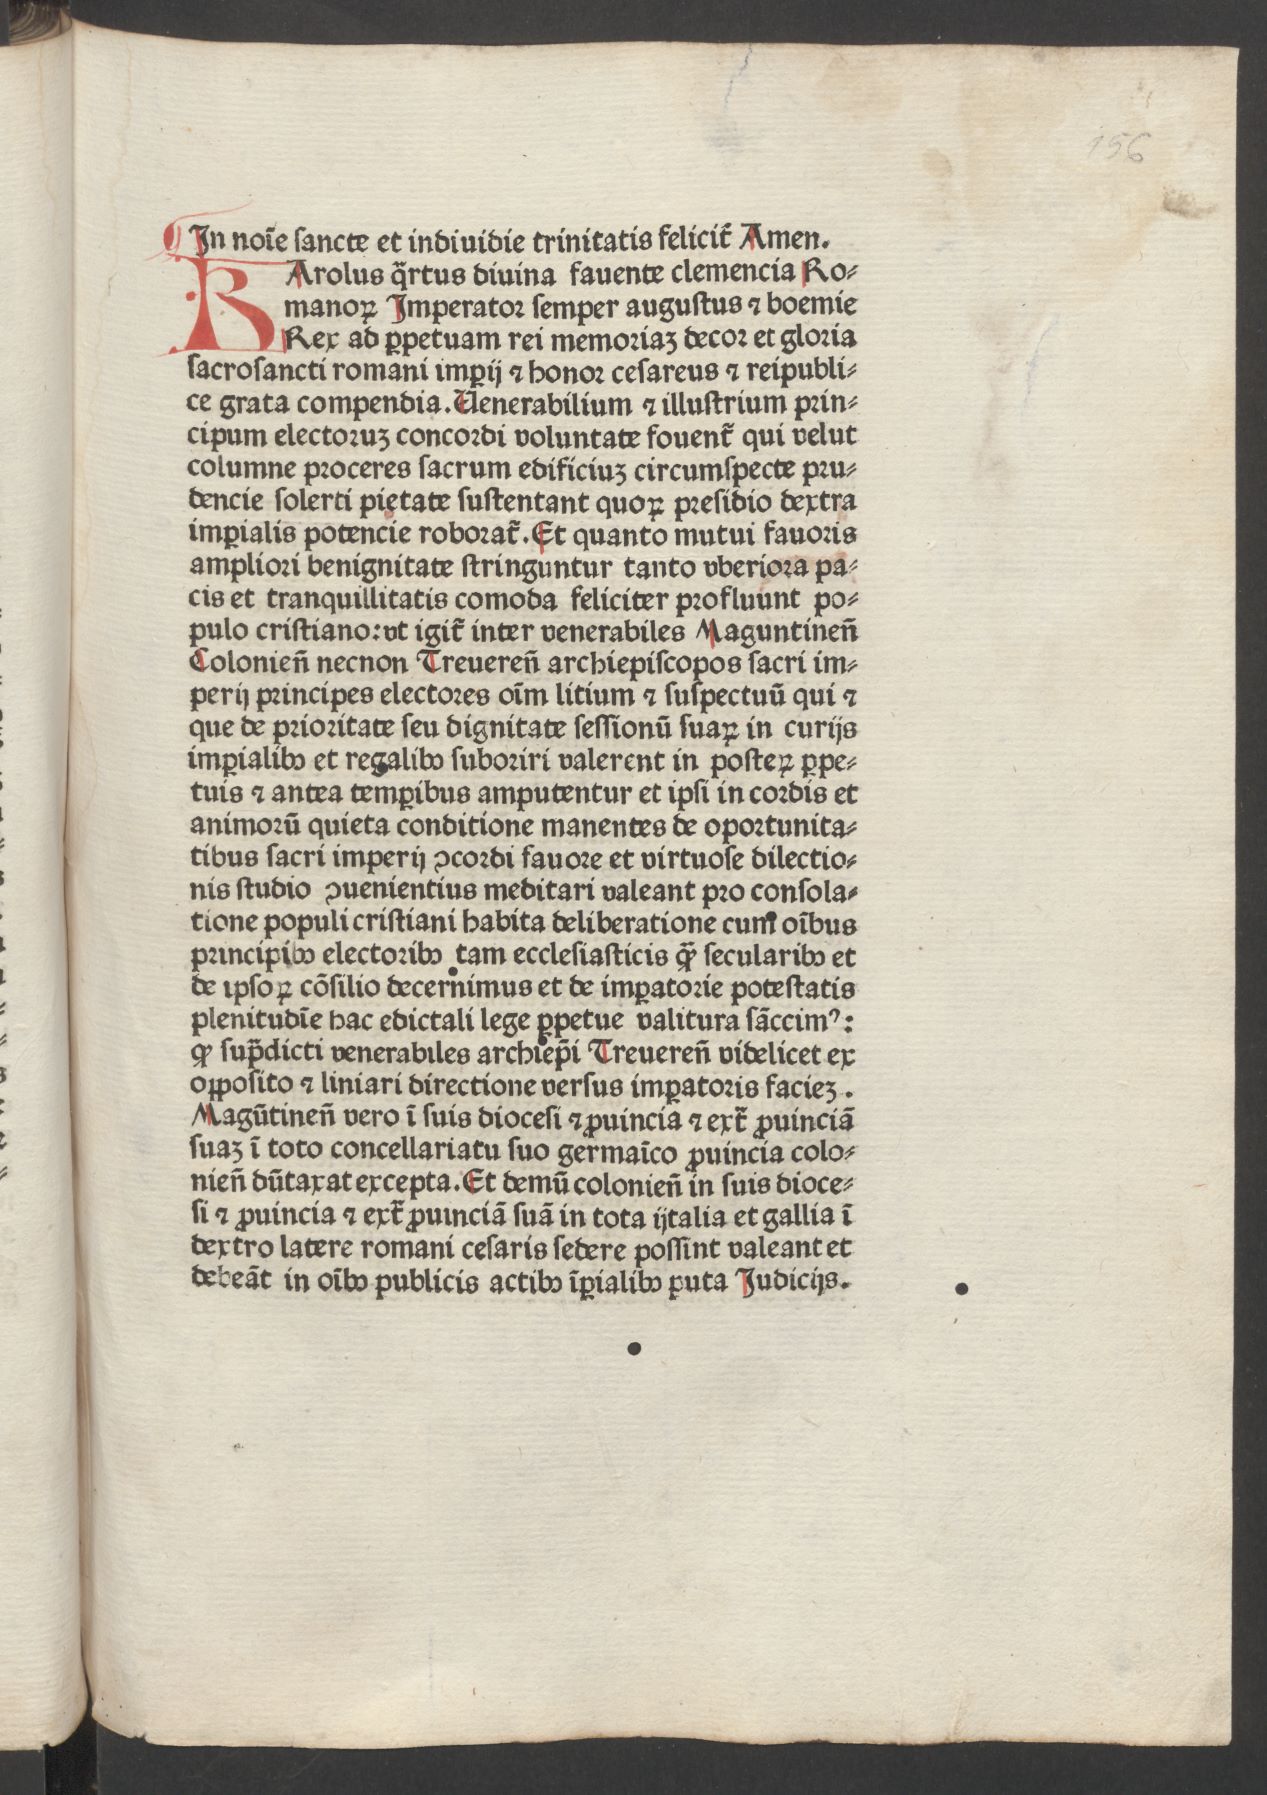 156
In noīe sancte et indiuidie trinitatis feliciť Amen.
KArolus q̄rtus diuina fauente clemencia Ro⸗
manoꝝ Imperator semper augustus ⁊ boemie
Rex ad ꝑpetuam rei memoriaꝫ decor et gloria
sacrosancti romani imꝑij ⁊ honor cesareus ⁊ reipubli⸗
ce grata compendia. Uenerabilium ⁊ illustrium prin⸗
cipum electoruꝫ concordi voluntate fouenť qui velut
columne proceres sacrum edificiuꝫ circumspecte pru⸗
dencie solerti pietate sustentant quoꝝ presidio dextra
imꝑialis potencie roborať. Et quanto mutui fauoris
ampliori benignitate stringuntur tanto vberiora pa⸗
cis et tranquillitatis comoda feliciter profluunt po⸗
pulo cristiano: vt igiť inter venerabiles Maguntineñ
Colonieñ necnon Treuereñ archiepiscopos sacri im⸗
perij principes electores oīm litium ⁊ suspectuū qui ⁊
que de prioritate seu dignitate sessionū suaꝝ in curijs
imꝑialibꝫ et regalibꝫ suboriri valerent in posteꝝ ꝑpe⸗
tuis ⁊ antea temꝑibus amputentur et ipsi in cordis et
animorū quieta conditione manentes de oportunita⸗
tibus sacri imperij ꝯcordi fauore et virtuose dilectio⸗
nis studio ꝯuenientius meditari valeant pro consola⸗
tione populi cristiani habita deliberatione cum oībus
principibꝫ electoribꝫ tam ecclesiasticis qꝫ̄ secularibꝫ et
de ipsoꝝ cōsilio decernimus et de imꝑatorie potestatis
plenitudīe hac edictali lege ꝑpetue valitura sāccimꝰ:
qꝫ̄ sup̄dicti venerabiles archiep̄i Treuereñ videlicet ex
opposito ⁊ liniari directione versus imꝑatoris facieꝫ.
Magūtineñ vero ī suis diocesi ⁊ ꝓuincia ⁊ exť ꝓuinciā
suaꝫ ī toto concellariatu suo germaīco ꝓuincia colo⸗
nieñ dūtaxat excepta. Et demū colonieñ in suis dioce⸗
si ⁊ ꝓuincia ⁊ exť ꝓuinciā suā in tota ijtalia et gallia ī
dextro latere romani cesaris sedere possint valeant et
debeāt in oībꝫ publicis actibꝫ īꝑialibꝫ puta Judicijs.